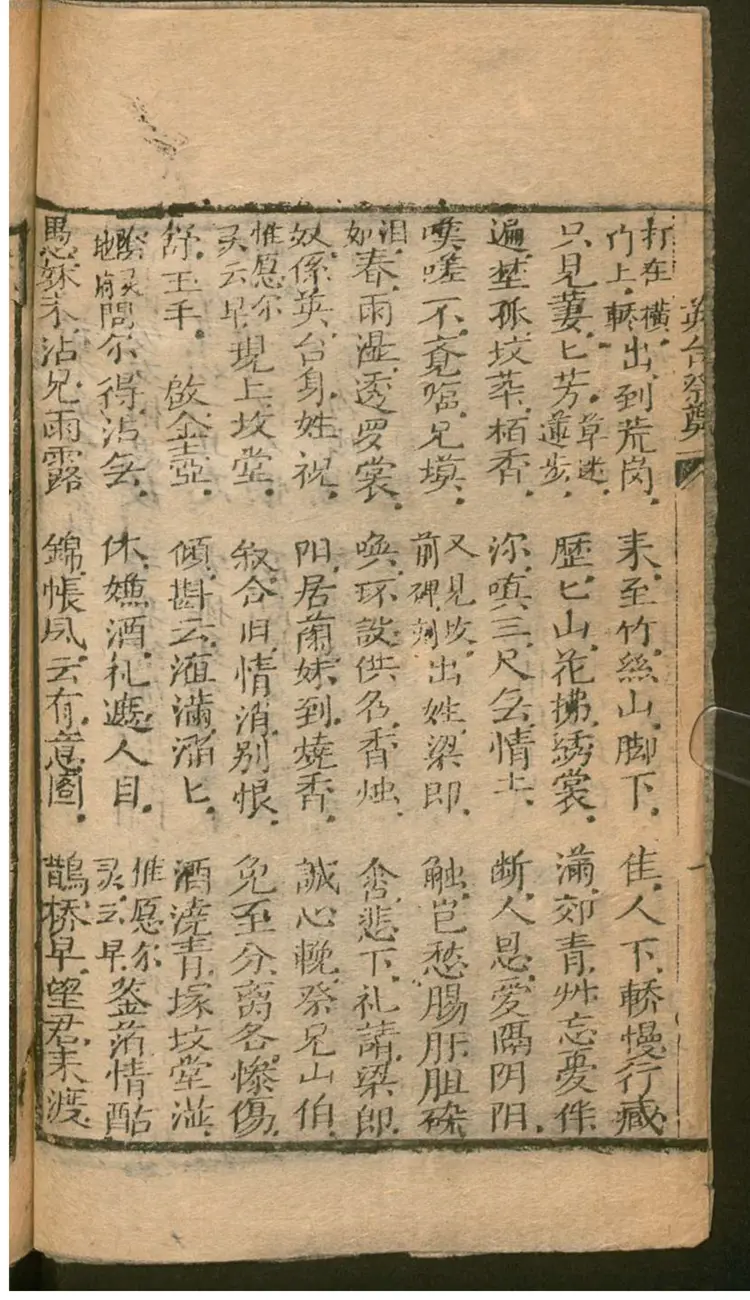 英台祭奠
打在橫門上，轎出到荒岗。　来至竹絲山脚下。　佳人下轎慢行藏
只見萋匕芳草迷蓮步。　歷匕山花拂綉裳。　滿郊青艸忘憂伴
遍埜孤坟葬栢香。　深嗔三尺无情土。　断人恩愛隔阴阳
嘆嗟不竟臨兄墳。　又見坟前碑刻出姓梁郎。　触岂愁腸肝胆碎
泪如春雨湿透罗裳。　喚环設供名香烛。　含悲下礼請梁郎
奴係英台身姓祝。　阳居蘭妹到燒香。　誠心輓祭兄山伯
惟愿尔灵云早現上坟堂。　叙合旧情消别恨。　免至分离各慘傷
舒玉手。啟金壺。　傾斟云液滿滔匕。　酒澆青塚坟堂湿
地府問尔得沾无。　休嫌酒礼遮人目。　惟愿尔灵云早鉴萡情酤
愚妹未沾兄雨露　錦帳风云有意圖。　鵲桥早望君来渡